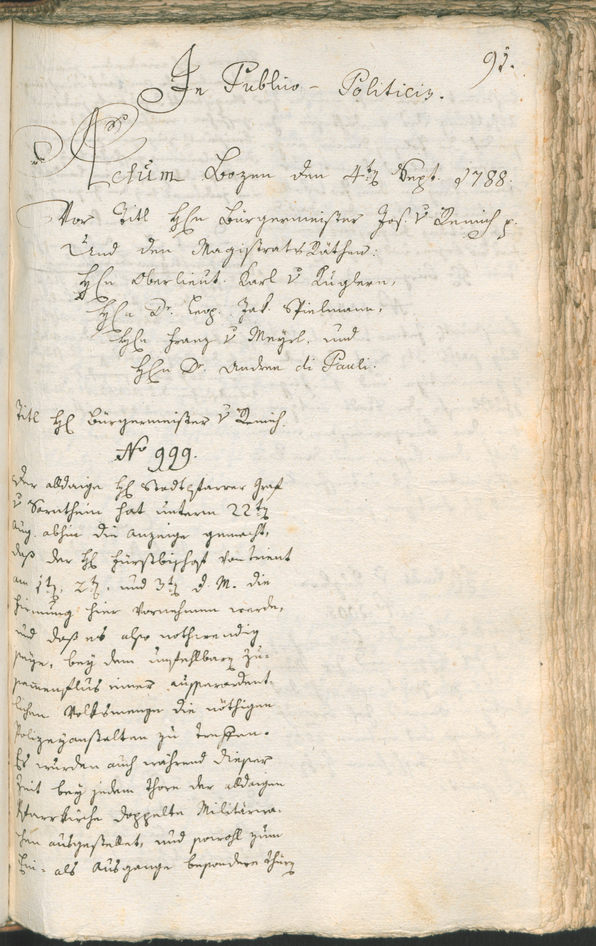 91.
In Publico-Politicis.
Actum Bozen den 4ten Sept. 1788.
Vor Titl Hn Bürgermeister Jos. v Remich p.
Und den Magistrats Räthen:
Hn Oberlieut. Karl v Kuglern,
Hn Dr. Leop. Jak. Spielmann,
Hn Franz v Mayrl, und
Hn Dr. Andree di Pauli.
Titl Hl Bürgermeister v Remich.
No 999.
Der alldaige Hl Stadtpfarrer Graf
v Sarnthein hat unterm 22ten
Aug. abhin die Anzeige gemacht,
daß der Hl Fürstbischof von Trient
am 1ten, 2ten, und 3ten d. M. die
Firmung hier vornehmen werde,
und daß es also nothwendig
seye, bey dem unfehlbaren Zu-
sammenflus einer ausserordent-
lichen Volksmenge die nöthigen
Polizeyanstalten zu treffen.
Es wurden auch während dieser
Zeit bey jedem Thore der alldaigen
Pfarrkirche doppelte Militärwa-
chen ausgestellet, und sowohl zum
Ein- als Ausgange besondere Thüren